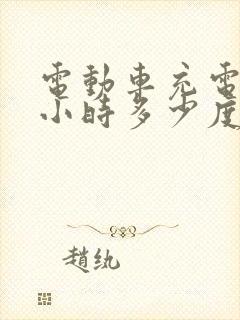 電動車充電
小時多少度
趙紈